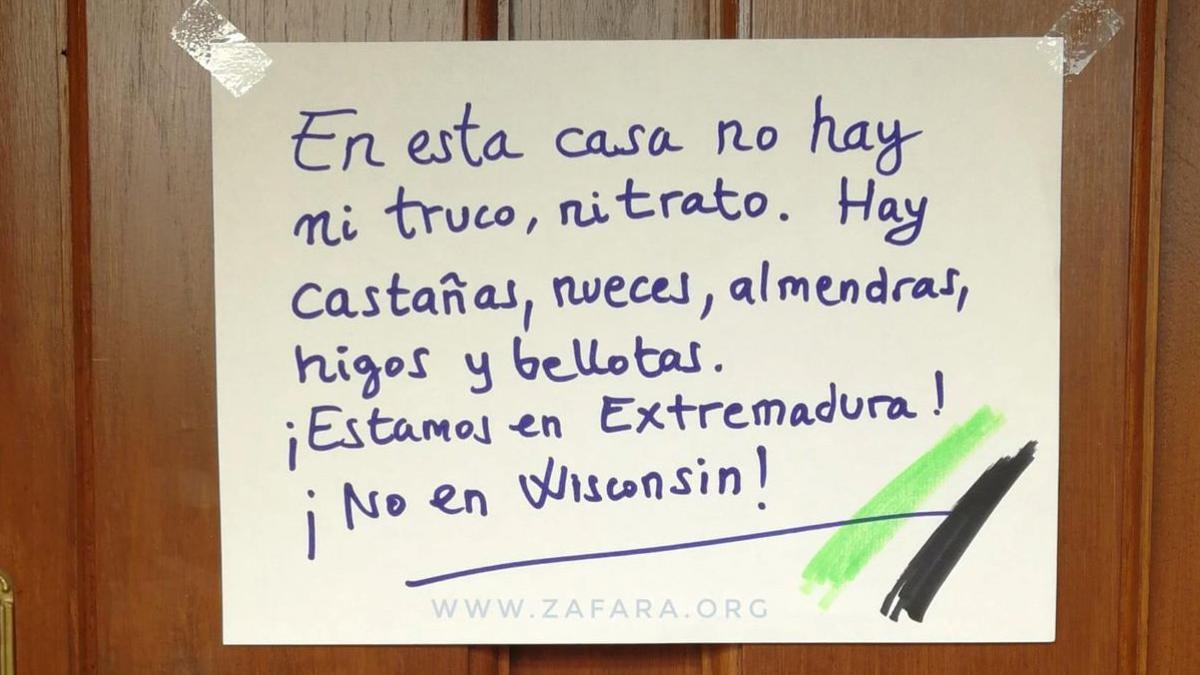 En esta casa no hay
ni truco, ni trato. Hay
castañas, nueces, almendras,
higos y bellotas.
¡Estamos en Extremadura!
¡No en Wisconsin!
WWW.ZAFARA.ORG